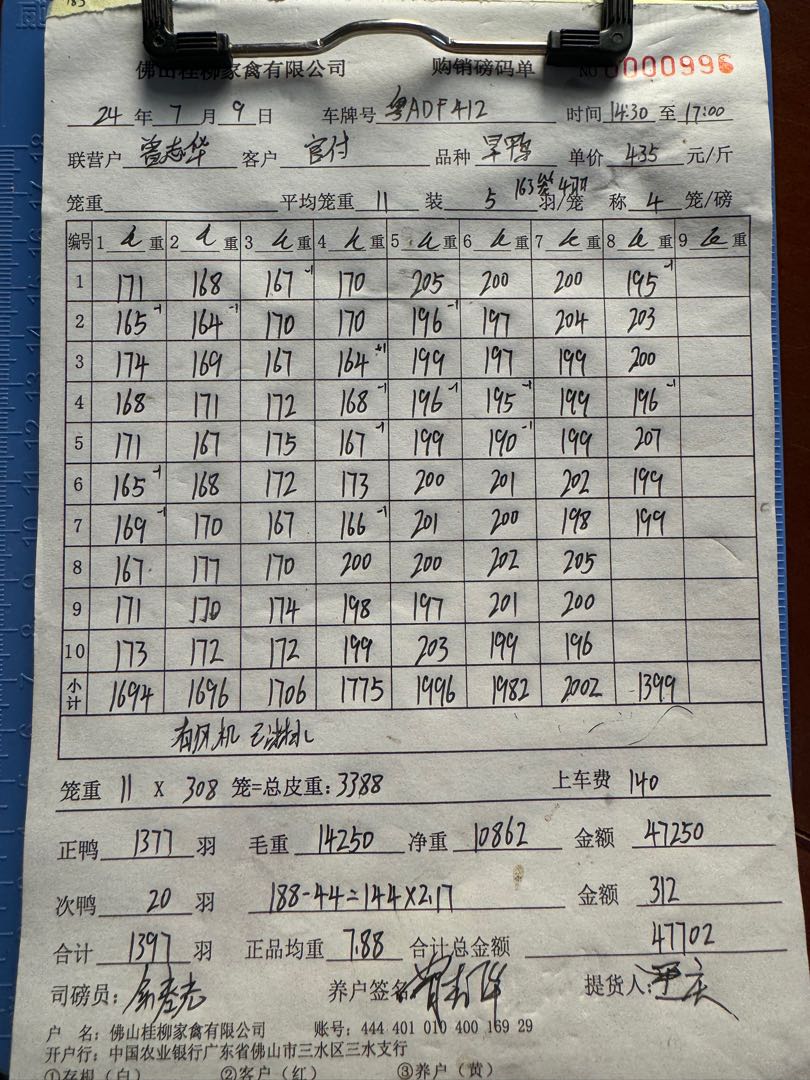 183
佛山桂柳家禽有限公司 购销磅码单 No 0000996
24 年 7 月 9 日 车牌号 粤ADF412 时间 14:30 至 17:00
联营户 曾志华 客户 官付 品种 旱鸭 单价 435 元/斤
163笼4羽
笼重 平均笼重 11 装 5 羽/笼 称 4 笼/磅
编号 1 重 2 重 3 重 4 重 5 重 6 重 7 重 8 重 9 重
1 171 168 167-1 170 205 200 200 195-1
2 165-1 164-1 170 170 196-1 197 204 203
3 174 169 167 164+1 199 197 199 200
4 168 171 172 168-1 196-1 195-1 199 196-1
5 171 167 175 167-1 199 190-1 199 207
6 165-1 168 172 173 200 201 202 199
7 169-1 170 167 166-1 201 200 198 199
8 167 177 170 200 200 202 205
9 171 170 174 198 197 201 200
10 173 172 172 199 203 199 196
小计 1694 1696 1706 1775 1996 1982 2002 1399
有风机 已淋水
笼重 11 X 308 笼=总皮重: 3388 上车费 140
正鸭 1377 羽 毛重 14250 净重 10862 金额 47250
次鸭 20 羽 188-44=144×2.17 金额 312
合计 1397 羽 正品均重 7.88 合计总金额 47702
司磅员: 养户签名 曾志华 提货人:
户 名: 佛山桂柳家禽有限公司 账号: 444 401 010 400 169 29
开户行: 中国农业银行广东省佛山市三水区三水支行
①存根(白) ②客户(红) ③养户(黄)